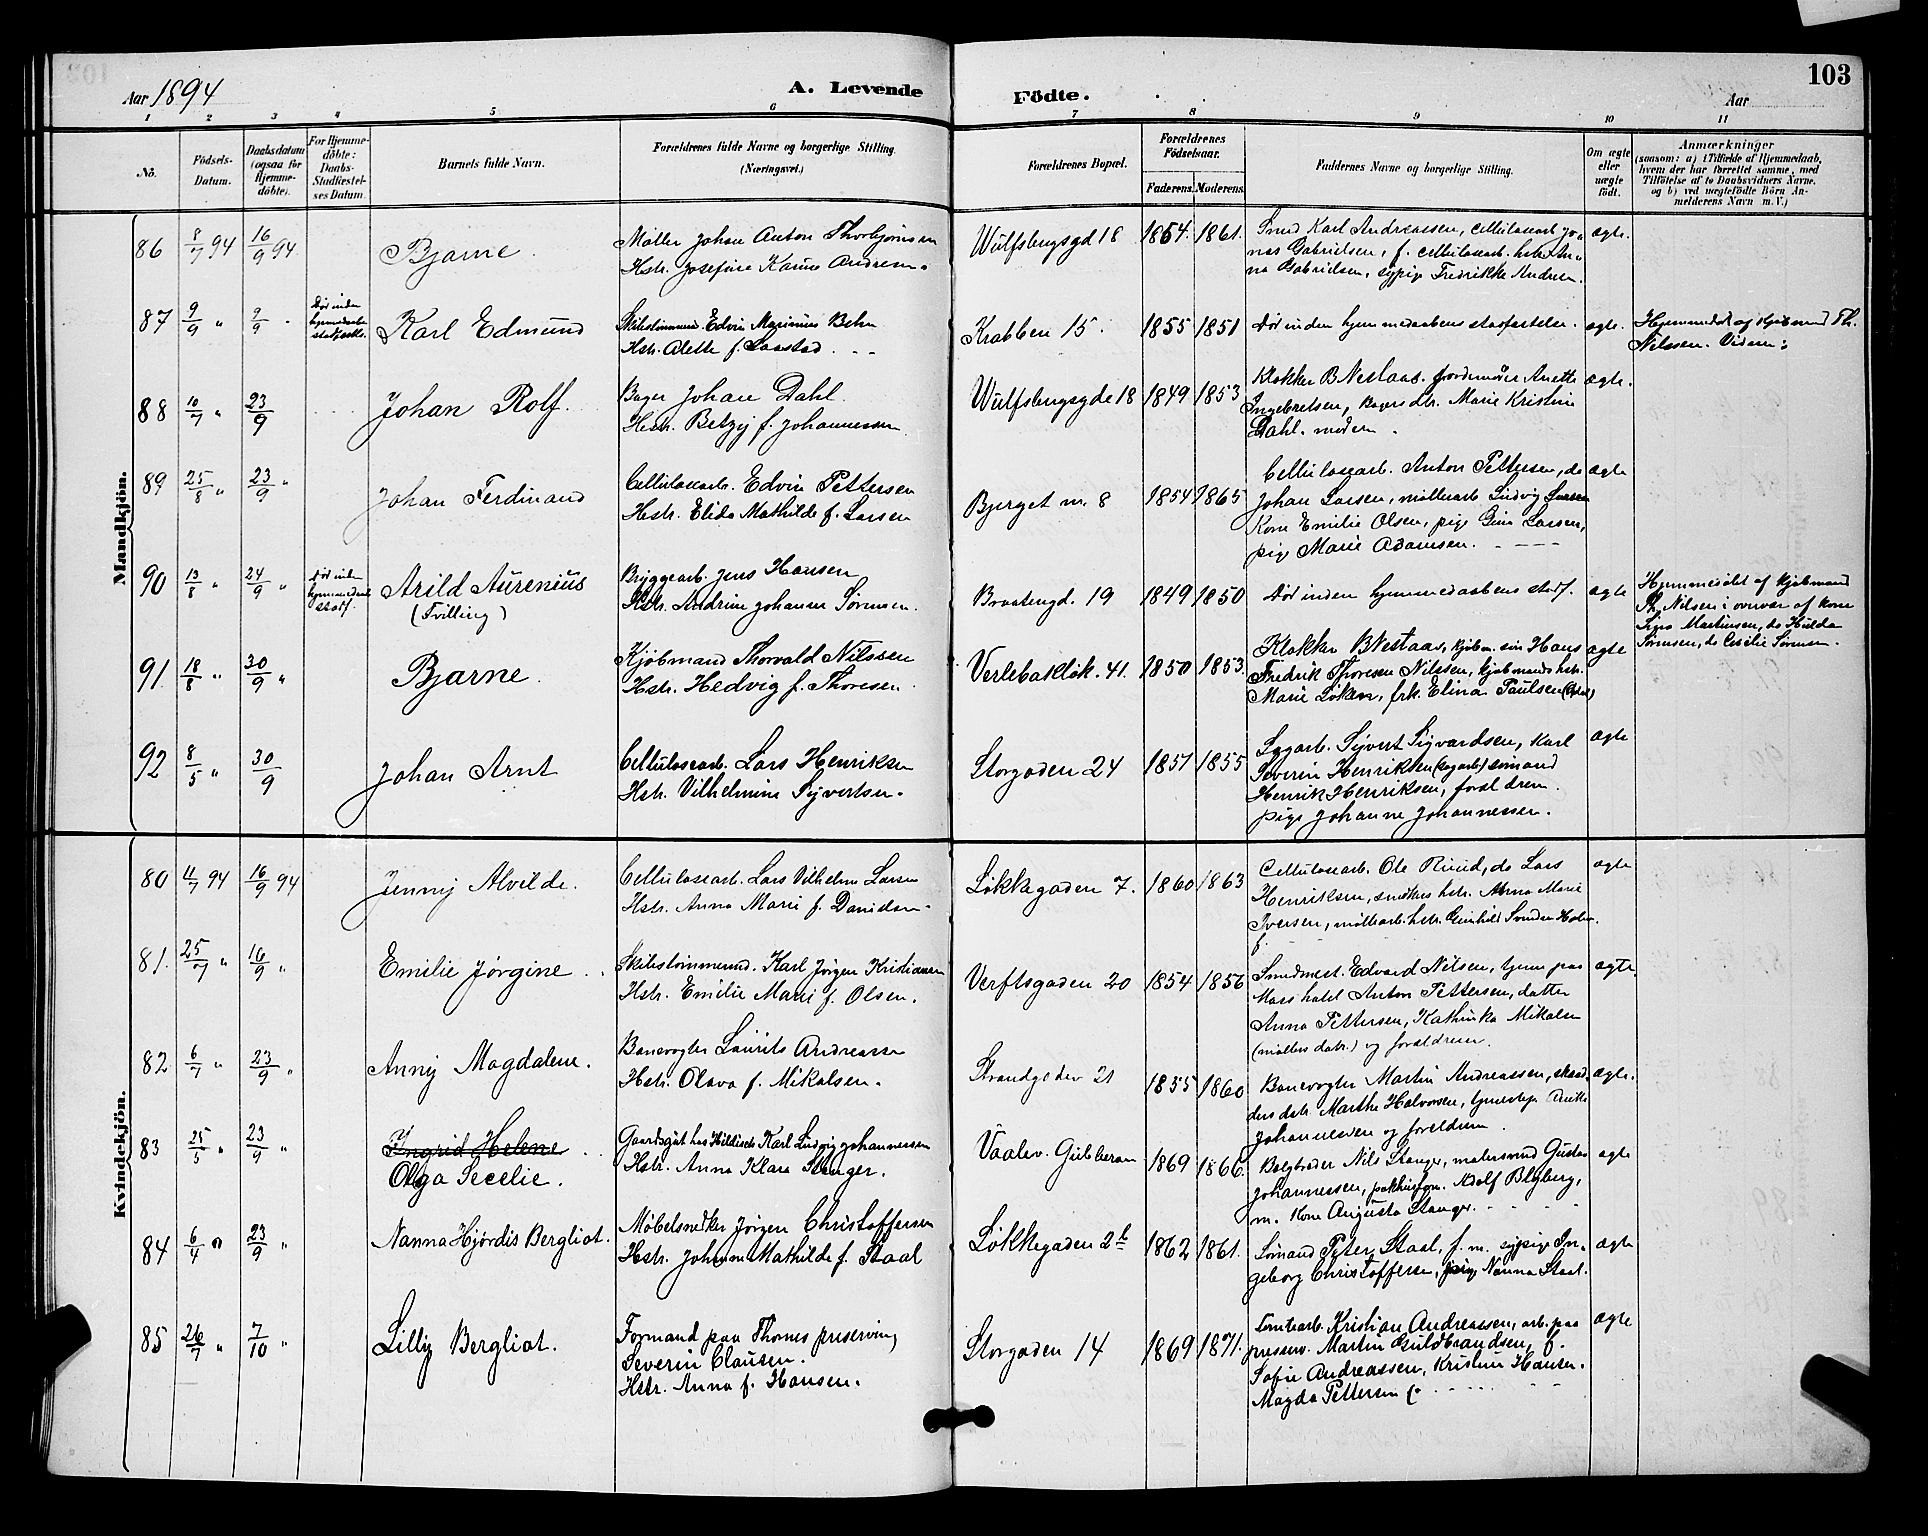 103
Aar 1894
A. Levende
Födte.
Aar
1 2 3 4 5 6 7 8 9 10 11
No.
Födsels-Datum.
Daabsdatum (ogsaa for Hjemme-döbte).
For Hjemme-döbte: Daabs-Stadfæstel-ses Datum.
Barnets fulde Navn.
Forældrenes fulde Navne og borgerlige Stilling.
(Næringsvei.)
Forældrenes Bopæl.
Forældrenes Födselsaar.
Faderens. Moderens.
Faddernes Navne og borgerlige Stilling.
Om ægte eller uægte födt.
Anmærkninger
(saasom: a) i Tilfælde af Hjemmedaab, hvem der har forrettet samme, med Tilföielse af to Daabsvidners Navne, og b) ved uægtefödte Börn Anmelderens Navn m. V.)
Mandkjön.
86 8/7 94 16/9 94 Bjarne.
Møller Johan Anton Thorbjørnsen
Hstr. Josefine Karine Andresen.
Wulfsbergsgd 18 1854. 1861.
Smed Karl Andreassen, cellulosearb. Jo-
nas Gabrielsen, f. cellulosearb. hstr. An-
na Gabrielsen, sypige Fredrikke Andresen.
ægte.
87 9/9 " 9/9 Død inden hjemmedaabs stadfæstelse
Karl Edmund
Skibstømmermd. Edvin Marinius Behn
Hstr. Alette f. Saastad
Krabben 15. 1855 1851
Død inden hjemmedaabens stadfæstelse. ægte.
Hjemmedøbt af Kjøbmand Th.
Nilssen.
88 10/7 " 23/9 Johan Rolf.
Bager Johan Dahl.
Hstr. Betzy f. Johannessen
Wulfsbergsgde 18 1849 1853
Klokker B Nestaas. Jordemoder Anette
Ingebretsen, Bagersdtr. Marie Kristine
Dahl. moderen.
ægte.
89 25/8 " 23/9 " Johan Ferdinand
Cellulosearb. Edvin Pettersen
Hstr. Elida Mathilde f. Larsen
Bjerget nr. 8 1854 1865
Cellulosearb. Anton Pettersen, do
Johan Larsen, møllearb. Ludvig Larsen
Kone Emilie Olsen, pige Gina Larsen,
pige Marie Adamsen.
ægte
90 13/8 " 24/9 " Død inden hjemmedaab stadf.
Arild Aurenius
(Tvilling)
Bryggearb. Jens Hansen
Hstr. Andrine Johanne Sørensen.
Braatengd. 19 1849 1850
Død inden hjemmedaabens stadf. ægte
Hjemmedøbt af Kjøbmand
Th. Nilsen i overvær af kone
Signe Martinsen, do Hulda
Sørensen, do Cecilie Sørensen.
91 18/8 " 30/9 " Bjarne.
Kjøbmand Thorvald Nilssen
Hstr. Hedvig f. Thoresen.
Verlebakløk. 41. 1850 1853.
Klokker B Nestaas, kjøbm. søn Hans
Fredrik Thoresen Nilssen, kjøbmands hstr.
Marie Løken, frk. Elina Paulsen
ægte
92 8/5 " 30/9 Johan Arnt
Cellulosearb. Lars Henriksen
Hstr. Vilhelmine Syvertsen.
Storgaden 24 1851 1855
Sagarb. Syvert Sigvardsen, Karl
Severin Henriksen (sagarb) sømand
Henrik Henriksen, forældrene.
pige Johanne Johannessen.
ægte
Kvindekjön.
80 11/7 94 16/9 94 Jenny Alvilde.
Cellulosearb. Lars Vilhelm Larsen
Hstr. Anna Marie f. Danielsen.
Løkkegaden 7. 1860 1863
Cellulosearb. Ole Ruud, do Lars
Henriksen, smedens hstr. Anna Marie
Iversen, møllearb. hstr. Gunhild Svendsen
f.
ægte
81. 25/7 " 16/9 " Emilie Jørgine
Skibstømmermd. Karl Jørgen Kristiansen
Hstr. Emilie Marie f. Olsen.
Verftsgaden 20 1854 1856
Smedmest. Edvard Nilsen, tjener paa
Moss hotel Anton Pettersen, datter
Anna Pettersen, Kathinka Mikalsen
(møllers datr.) og forældrene.
ægte.
82 6/7 " 23/9 " Anny Magdalene.
Banevogter Laurits Andreassen
Hstr. Olava f. Mikalsen.
Strandgaden 21 1855 1860
Banevogter Martin Andreassen,
datr. Marthe Halvorsen, tjenestepige Anette
Johannesen og forældrene.
ægte.
83 25/5 " 23/9 " Ingrid Helene
Olga Secelie.
Gaardsgut hos Hildisch Karl Ludvig Johannessen
Hstr. Anna Klara Stanger.
Vaaler. Gubberan 1869 1866
Nils Stanger, malersvend Gustav
Johannessen, pakhusfm. Adolf Blyberg,
m. Kone Augusta Stanger.
ægte
84 6/4 " 23/9 " Nanna Hjørdis Bergliot.
Møbelsnedker Jørgen Christoffersen
Hstr. Johanne Mathilde f. Staal
Løkkegaden 2b 1862 1861.
Sømand Peter Staal, f. m. sypige In-
geborg Christoffersen, pige Nanna Staal.
ægte
85 26/7 " 7/10 " Lilly Bergliot.
Formand paa Thornes preserving
Severin Clausen.
Hstr. Anna f. Hansen.
Storgaden 14 1869 1871.
Tomtearb. Kristian Andreassen, arb. paa
preserv. Martin Guldbrandsen, f.
Sofie Andreassen, Kristine Hansen.
Magda Pettersen
ægte